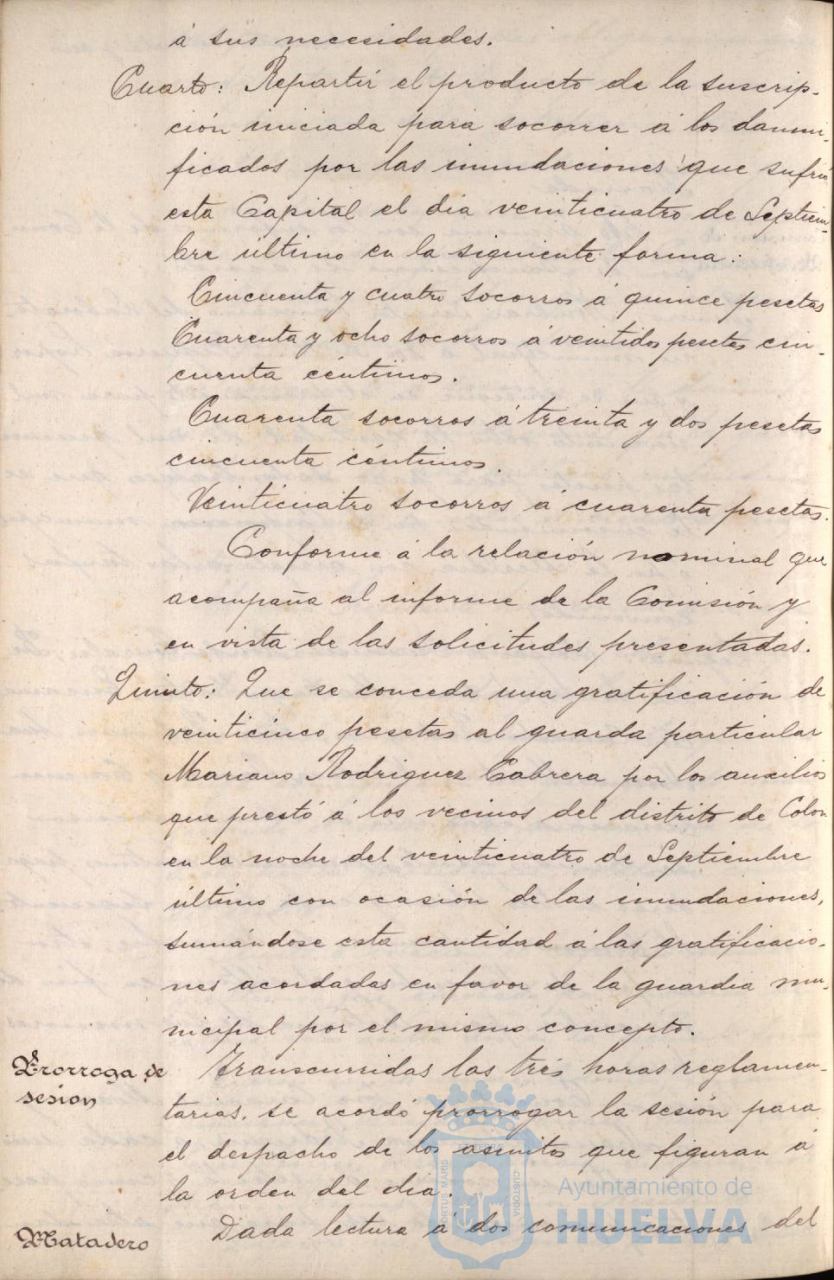 á sus necesidades.
Cuarto: Repartir el producto de la suscrip-
ción iniciada para socorrer á los damni-
ficados por las inundaciones que sufrió
esta Capital el dia veinticuatro de Septiem-
bre último en la siguiente forma:
Cincuenta y cuatro socorros á quince pesetas
Cuarenta y ocho socorros á veintidos pesetas cin-
cuenta céntimos.
Cuarenta socorros á treinta y dos pesetas
cincuenta céntimos.
Veinticuatro socorros á cuarenta pesetas.
Conforme á la relación nominal que
acompaña al informe de la Comisión y
en vista de las solicitudes presentadas.
Quinto: Que se conceda una gratificación de
veinticinco pesetas al guarda particular
Mariano Rodriguez Cabrera por los auxilios
que prestó á los vecinos del distrito de Colon
en la noche del veinticuatro de Septiembre
último con ocasión de las inundaciones,
sumándose esta cantidad á las gratificacio-
nes acordadas en favor de la guardia mu-
nicipal por el mismo concepto.
Prorroga de
sesion
Transcurridas las tres horas reglamen-
tarias, se acordó prorrogar la sesión para
el despacho de los asuntos que figuran á
la orden del dia.
Matadero
Dada lectura á dos comunicaciones del
Ayuntamiento de
HUELVA